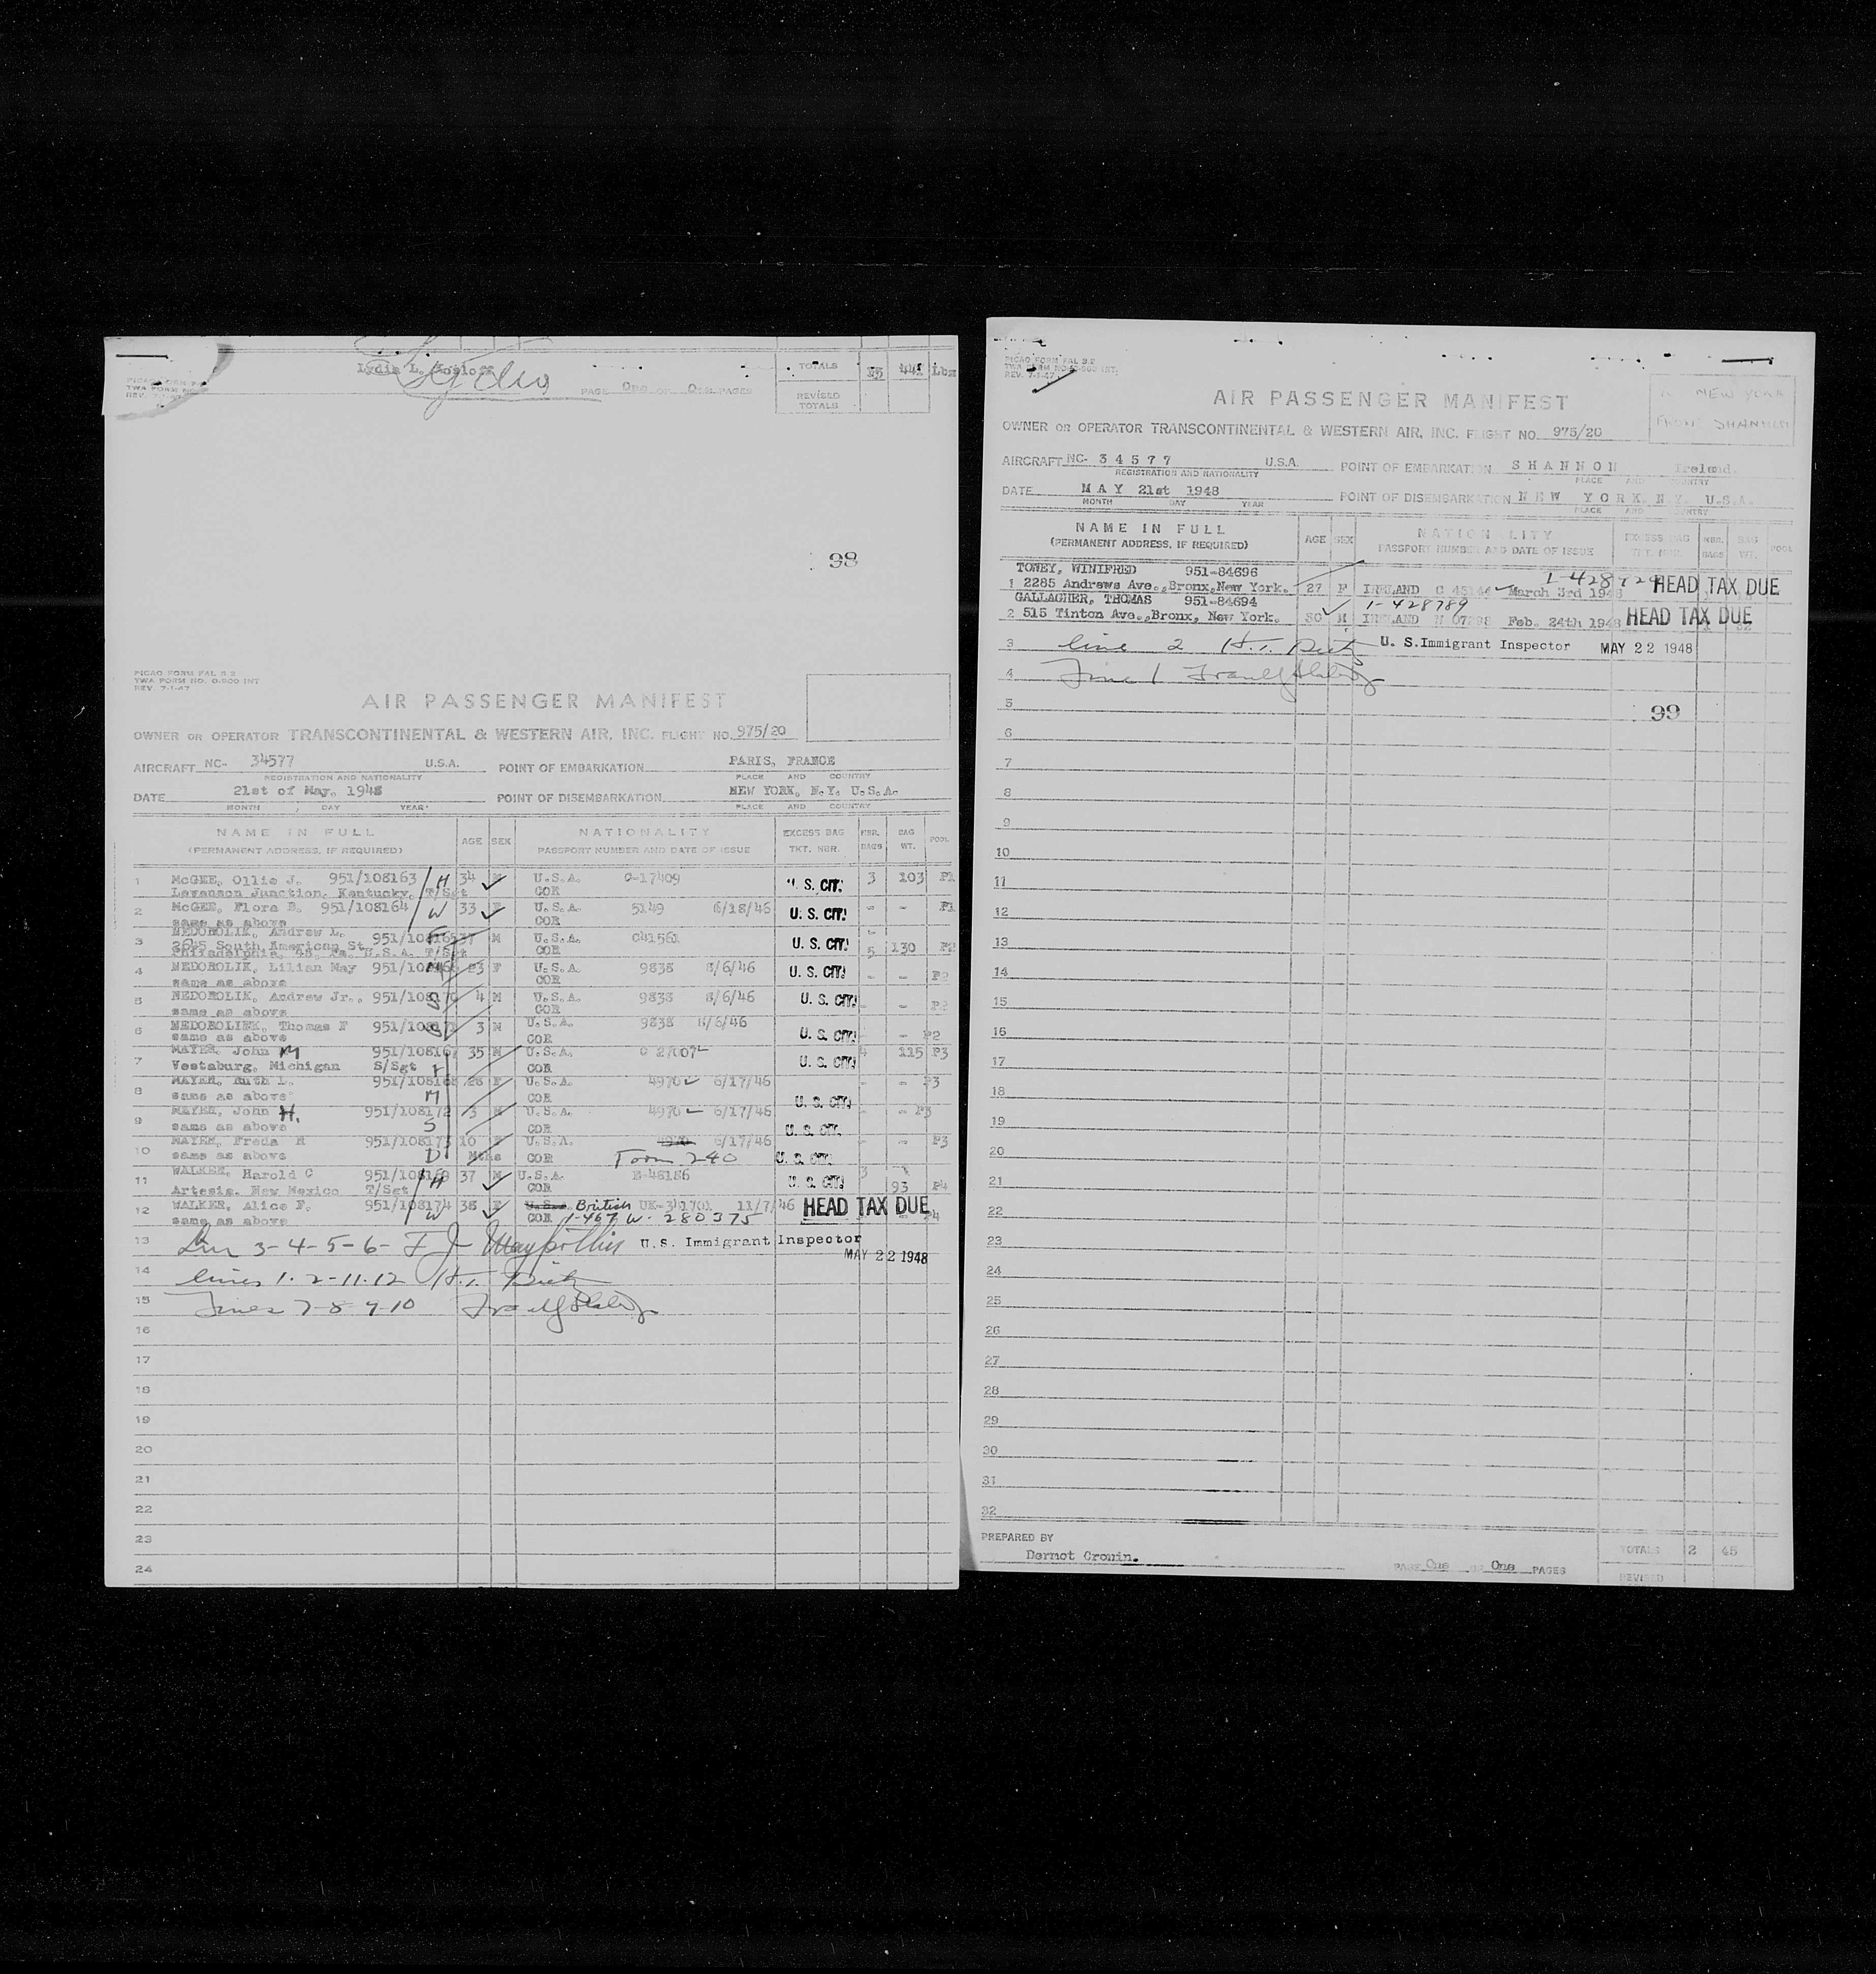 PICAO FORM FAL 3-2
TWA FORM NO.
REV. 7-1-47
Lydia L.
Lydia
PAGE One OF One PAGES
TOTALS 15 441 Lbs
REVISED
TOTALS
98
PICAO FORM FAL 3-2
TWA FORM NO. 0-800 INT
REV. 7-1-47
AIR PASSENGER MANIFEST
OWNER OR OPERATOR TRANSCONTINENTAL & WESTERN AIR, INC. FLIGHT NO. 975/20
AIRCRAFT NC- 34577 U.S.A. POINT OF EMBARKATION PARIS, FRANCE
REGISTRATION AND NATIONALITY PLACE AND COUNTRY
DATE 21st of May, 1948 POINT OF DISEMBARKATION NEW YORK, N.Y. U.S.A.
MONTH DAY YEAR PLACE AND COUNTRY
NAME IN FULL AGE SEX NATIONALITY EXCESS BAG NBR. BAG POOL
(PERMANENT ADDRESS, IF REQUIRED) PASSPORT NUMBER AND DATE OF ISSUE TKT. NBR. BAGS WT.
1 McGEE, Ollie J. 951/108163 H 34 M U.S.A. C-17409 U. S. CIT. 3 103 P1
Levanson Junction, Kentucky, T/Sgt COR
2 McGEE, Flora B. 951/108164 W 33 F U.S.A. 5149 6/18/46 U. S. CIT. - - P1
same as above COR
MEDOBOLIK, Andrew L.
3 2645 South American St. 951/108165 F 37 M U.S.A. C41561 U. S. CIT. 5 130 P2
Philadelphia, 48, Pa. U.S.A. T/Sgt COR
4 MEDOBOLIK, Lilian May 951/108166 M 23 F U.S.A. 9838 8/6/46 U. S. CIT. - - P2
same as above COR
5 MEDOBOLIK, Andrew Jr., 951/108170 S 4 M U.S.A. 9838 8/6/46 U. S. CIT. - - P2
same as above COR
6 MEDOBOLIEK, Thomas F 951/108171 S 3 M U.S.A. 9838 8/6/46 U. S. CIT. - - P2
same as above COR
7 MAYER, John M 951/108167 35 M U.S.A. C 27007 U. S. CIT. 4 115 P3
Vestaburg, Michigan S/Sgt F COR
8 MAYER, Ruth L. 951/108168 28 F U.S.A. 4970 6/17/46 U. S. CIT. - - P3
same as above M COR
9 MAYER, John H. 951/108172 3 M U.S.A. 4970 6/17/46 U. S. CIT. - - P3
same as above S COR
10 MAYER, Freda H 951/108173 10 F U.S.A. 4970 6/17/46 U. S. CIT. - - P3
same as above D Mths COR Form 240
11 WALKER, Harold C 951/108169 37 M U.S.A. E-48186 U. S. CIT. 3 93 P4
Artesia. New Mexico T/Sgt H COR
12 WALKER, Alice F. 951/108174 38 F U.S.A. British UK-341701 11/7/46 HEAD TAX DUE P4
same as above W COR 1-467 W- 280375
13 Line 3-4-5-6- F J U.S. Immigrant Inspector
MAY 22 1948
14 lines 1-2-11-12 H.
15 Lines 7-8 9-10
16
17
18
19
20
21
22
23
24
PICAO FORM FAL 3-2
TWA FORM NO. 0-800 INT.
REV. 7-1-47
AIR PASSENGER MANIFEST
NEW YORK
FROM SHANNON
OWNER OR OPERATOR TRANSCONTINENTAL & WESTERN AIR, INC. FLIGHT NO. 975/20
AIRCRAFT NC- 34577 U.S.A. POINT OF EMBARKATION SHANNON Ireland.
REGISTRATION AND NATIONALITY PLACE AND COUNTRY
DATE MAY 21st 1948 POINT OF DISEMBARKATION NEW YORK. N.Y. U.S.A.
MONTH DAY YEAR PLACE AND COUNTRY
NAME IN FULL AGE SEX NATIONALITY EXCESS BAG NBR. BAG POOL
(PERMANENT ADDRESS, IF REQUIRED) PASSPORT NUMBER AND DATE OF ISSUE TKT. NBR. BAGS WT.
TOWEY, WINIFRED 951-84696
1 2285 Andrews Ave.,Bronx,New York. 27 F IRELAND March 3rd 1948 HEAD TAX DUE
GALLAGHER, THOMAS 951-84694 1-428789
2 515 Tinton Ave.,Bronx, New York. 50 M IRELAND Feb. 24th 1948 HEAD TAX DUE
3 line 2 H. U. S.Immigrant Inspector MAY 22 1948
4 Line 1
5 99
6
7
8
9
10
11
12
13
14
15
16
17
18
19
20
21
22
23
24
25
26
27
28
29
30
31
32
PREPARED BY
Dermot Cronin.
PAGE One OF One PAGES
TOTALS 2 45
REVISED